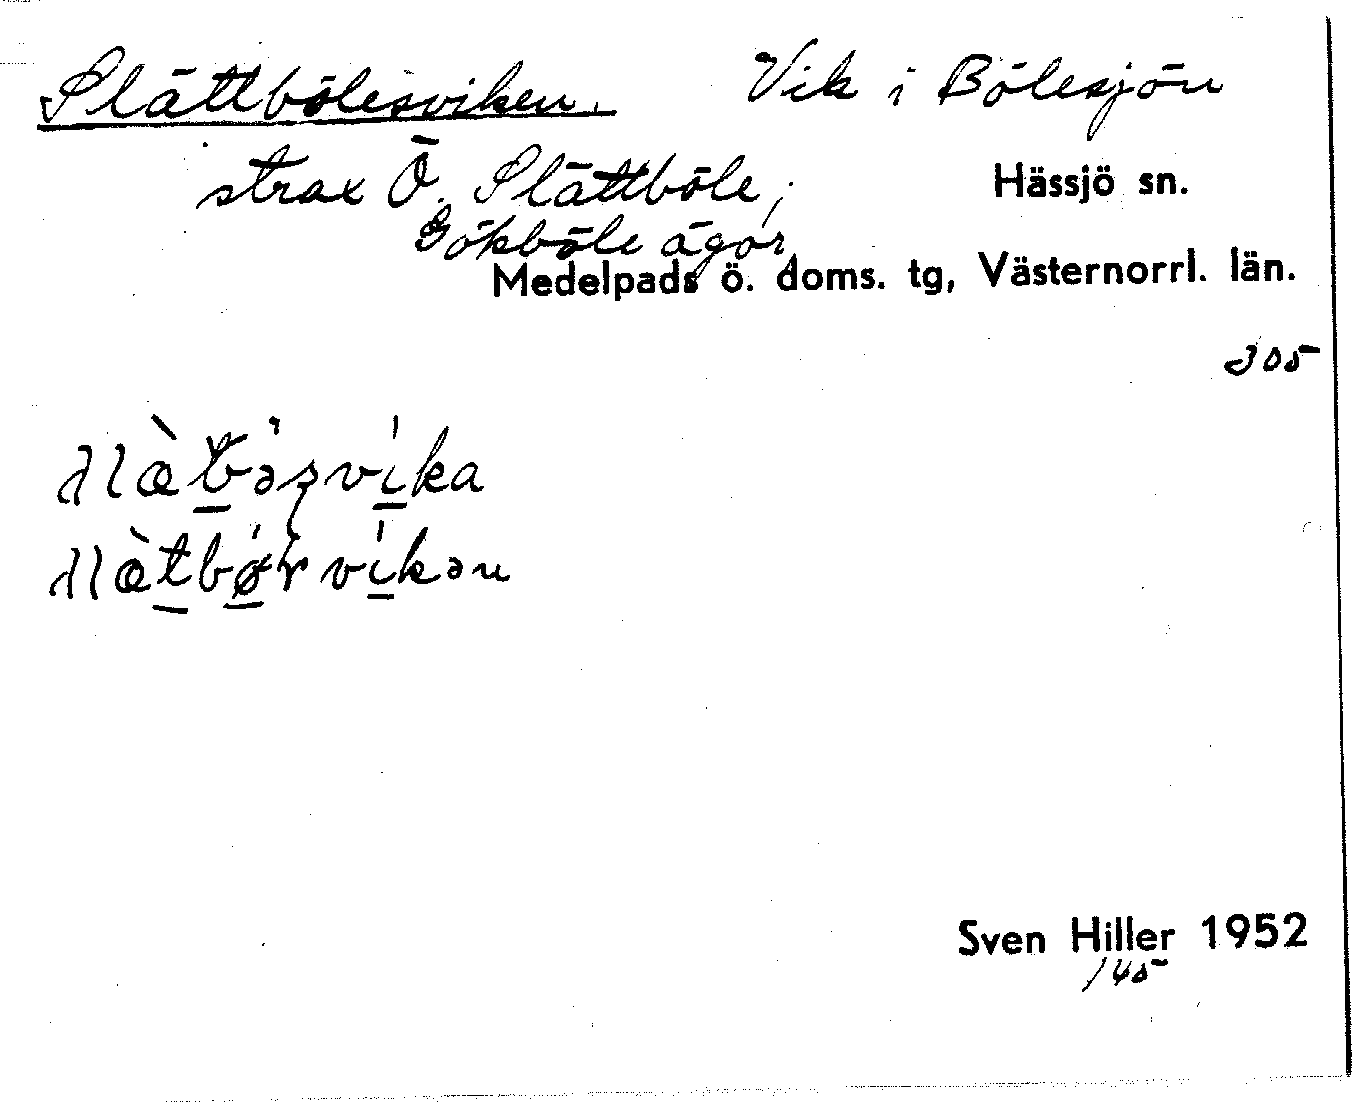 Slättbölesviken. Vik i Bölesjön
strax Ö. Slättböle, Hässjö sn.
Gökböle ägor
Medelpads ö. doms. tg, Västernorrl. län.
305
Sven Hiller 1952
145